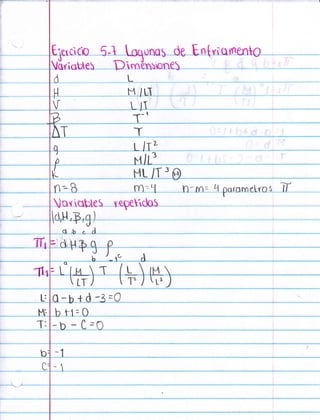 Ejercicio 5.7 Lagunas de Enfriamento
Variables Dimensiones
d L
H M/LT
V L/T
B T⁻¹
ΔT T
g L/T²
ρ M/L³
K ML/T³Θ
n=8 m=4 n-m= 4 parametros π
Variables repetidas
(d,H,B,g)
a b c d
π₁ = d H B g ρ
π₁ = L^a (M/LT)^b T^-1c (L/T²)^d (M/L³)
L: a-b+d-3=0
M: b+1=0
T: -b-c=0
b= -1
C= -1